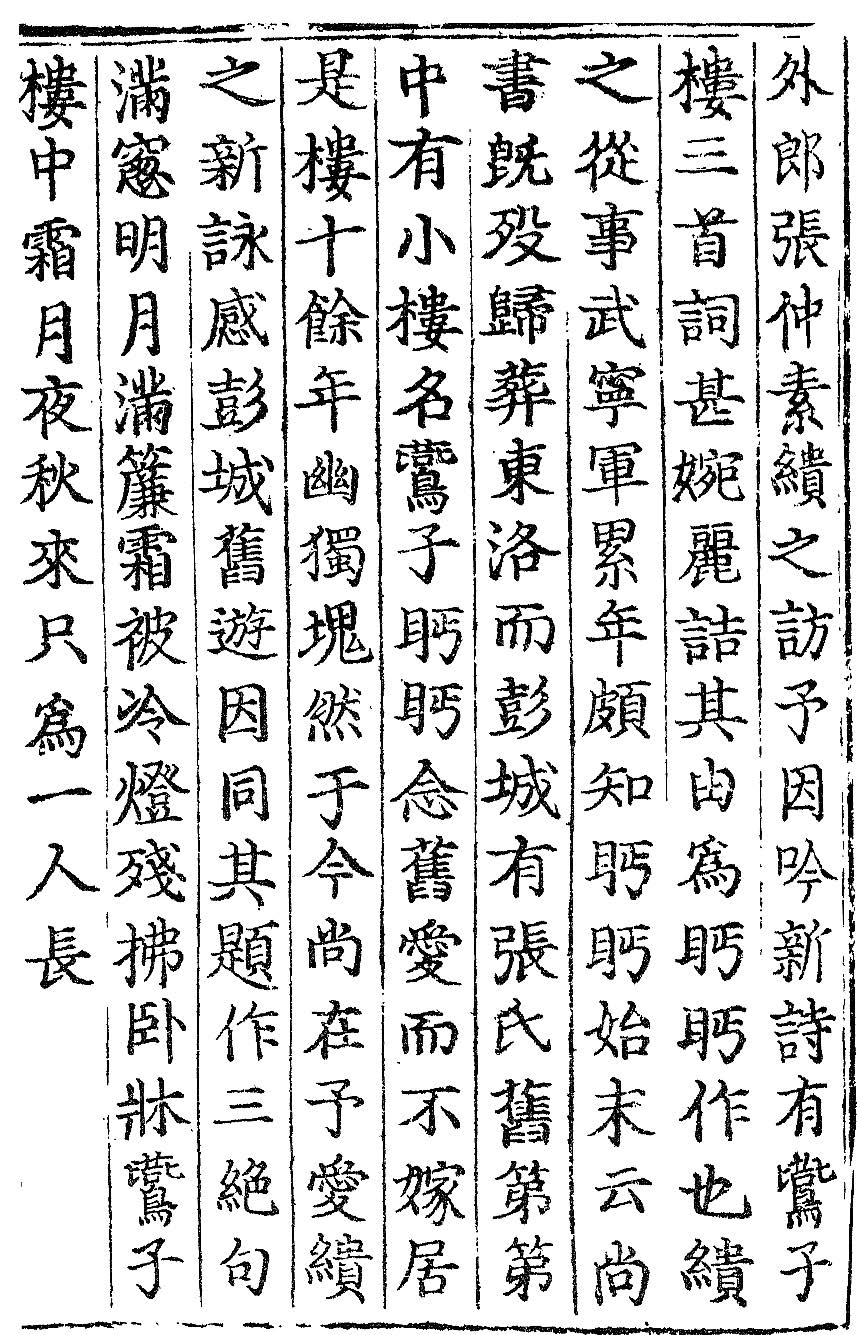 外郎張仲素繢之訪予因吟新詩有鷰子
樓三首詞甚婉麗詰其由爲眄眄作也繢
之從事武寧軍累年頗知眄眄始末云尚
書旣歿歸葬東洛而彭城有張氏舊第第
中有小樓名鷰子眄眄念舊愛而不嫁居
是樓十餘年幽獨塊然于今尚在予愛繢
之新詠感彭城舊遊因同其題作三絶句
滿窻明月滿簾霜被冷燈殘拂卧牀鷰子
樓中霜月夜秋來只爲一人長